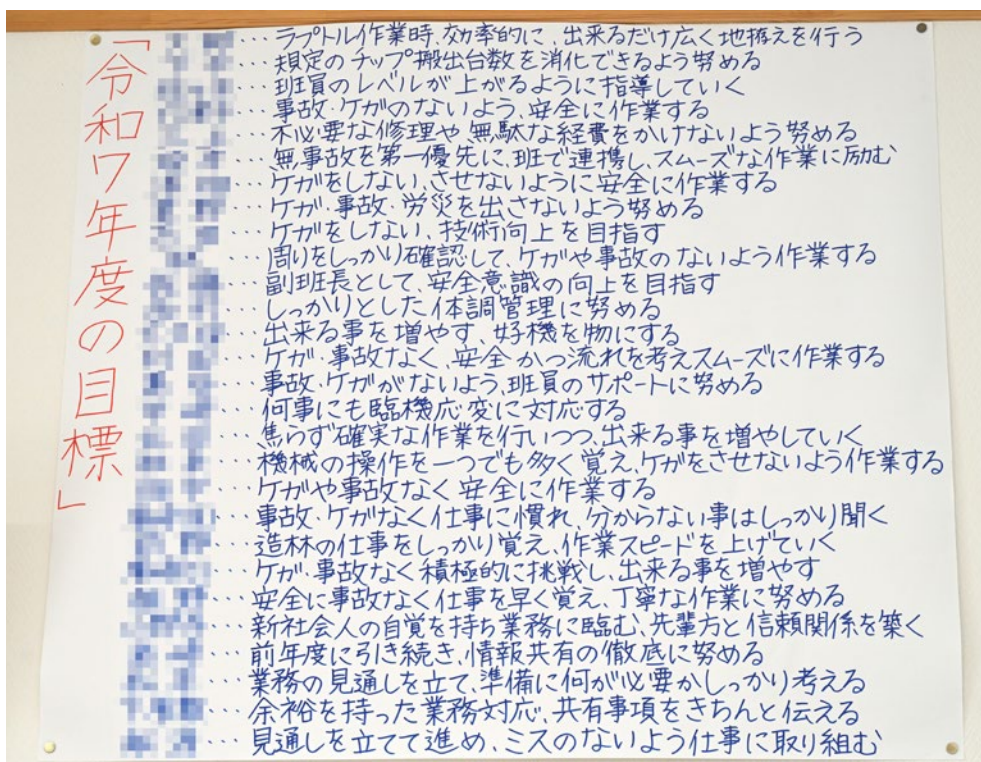 「令和7年度の目標」
…ラプトル作業時、効率的に、出来るだけ広く地拵えを行う
…規定のチップ搬出台数を消化できるよう努める
…班員のレベルが上がるように指導していく
…事故・ケガのないよう、安全に作業する
…不必要な修理や、無駄な経費をかけないよう努める
…無事故を第一優先に、班で連携し、スムーズな作業に励む
…ケガをしない、させないように安全に作業する
…ケガ・事故・労災を出さないよう努める
…ケガをしない、技術向上を目指す
…周りをしっかり確認して、ケガや事故のないよう作業する
…副班長として、安全意識の向上を目指す
…しっかりとした体調管理に努める
…出来る事を増やす、好機を物にする
…ケガ・事故なく、安全かつ流れを考えスムーズに作業する
…事故・ケガがないよう、班員のサポートに努める
…何事にも臨機応変に対応する
…焦らず確実な作業を行いつつ、出来る事を増やしていく
…機械の操作を一つでも多く覚え、ケガをさせないよう作業する
…ケガや事故なく安全に作業する
…事故・ケガなく仕事に慣れ、分からない事はしっかり聞く
…造林の仕事をしっかり覚え、作業スピードを上げていく
…ケガ・事故なく積極的に挑戦し、出来る事を増やす
…安全に事故なく仕事を早く覚え、丁寧な作業に努める
…新社会人の自覚を持ち業務に臨む、先輩方と信頼関係を築く
…前年度に引き続き、情報共有の徹底に努める
…業務の見通しを立て、準備に何が必要かしっかり考える
…余裕を持った業務対応、共有事項をきちんと伝える
…見通しを立てて進め、ミスのないよう仕事に取り組む